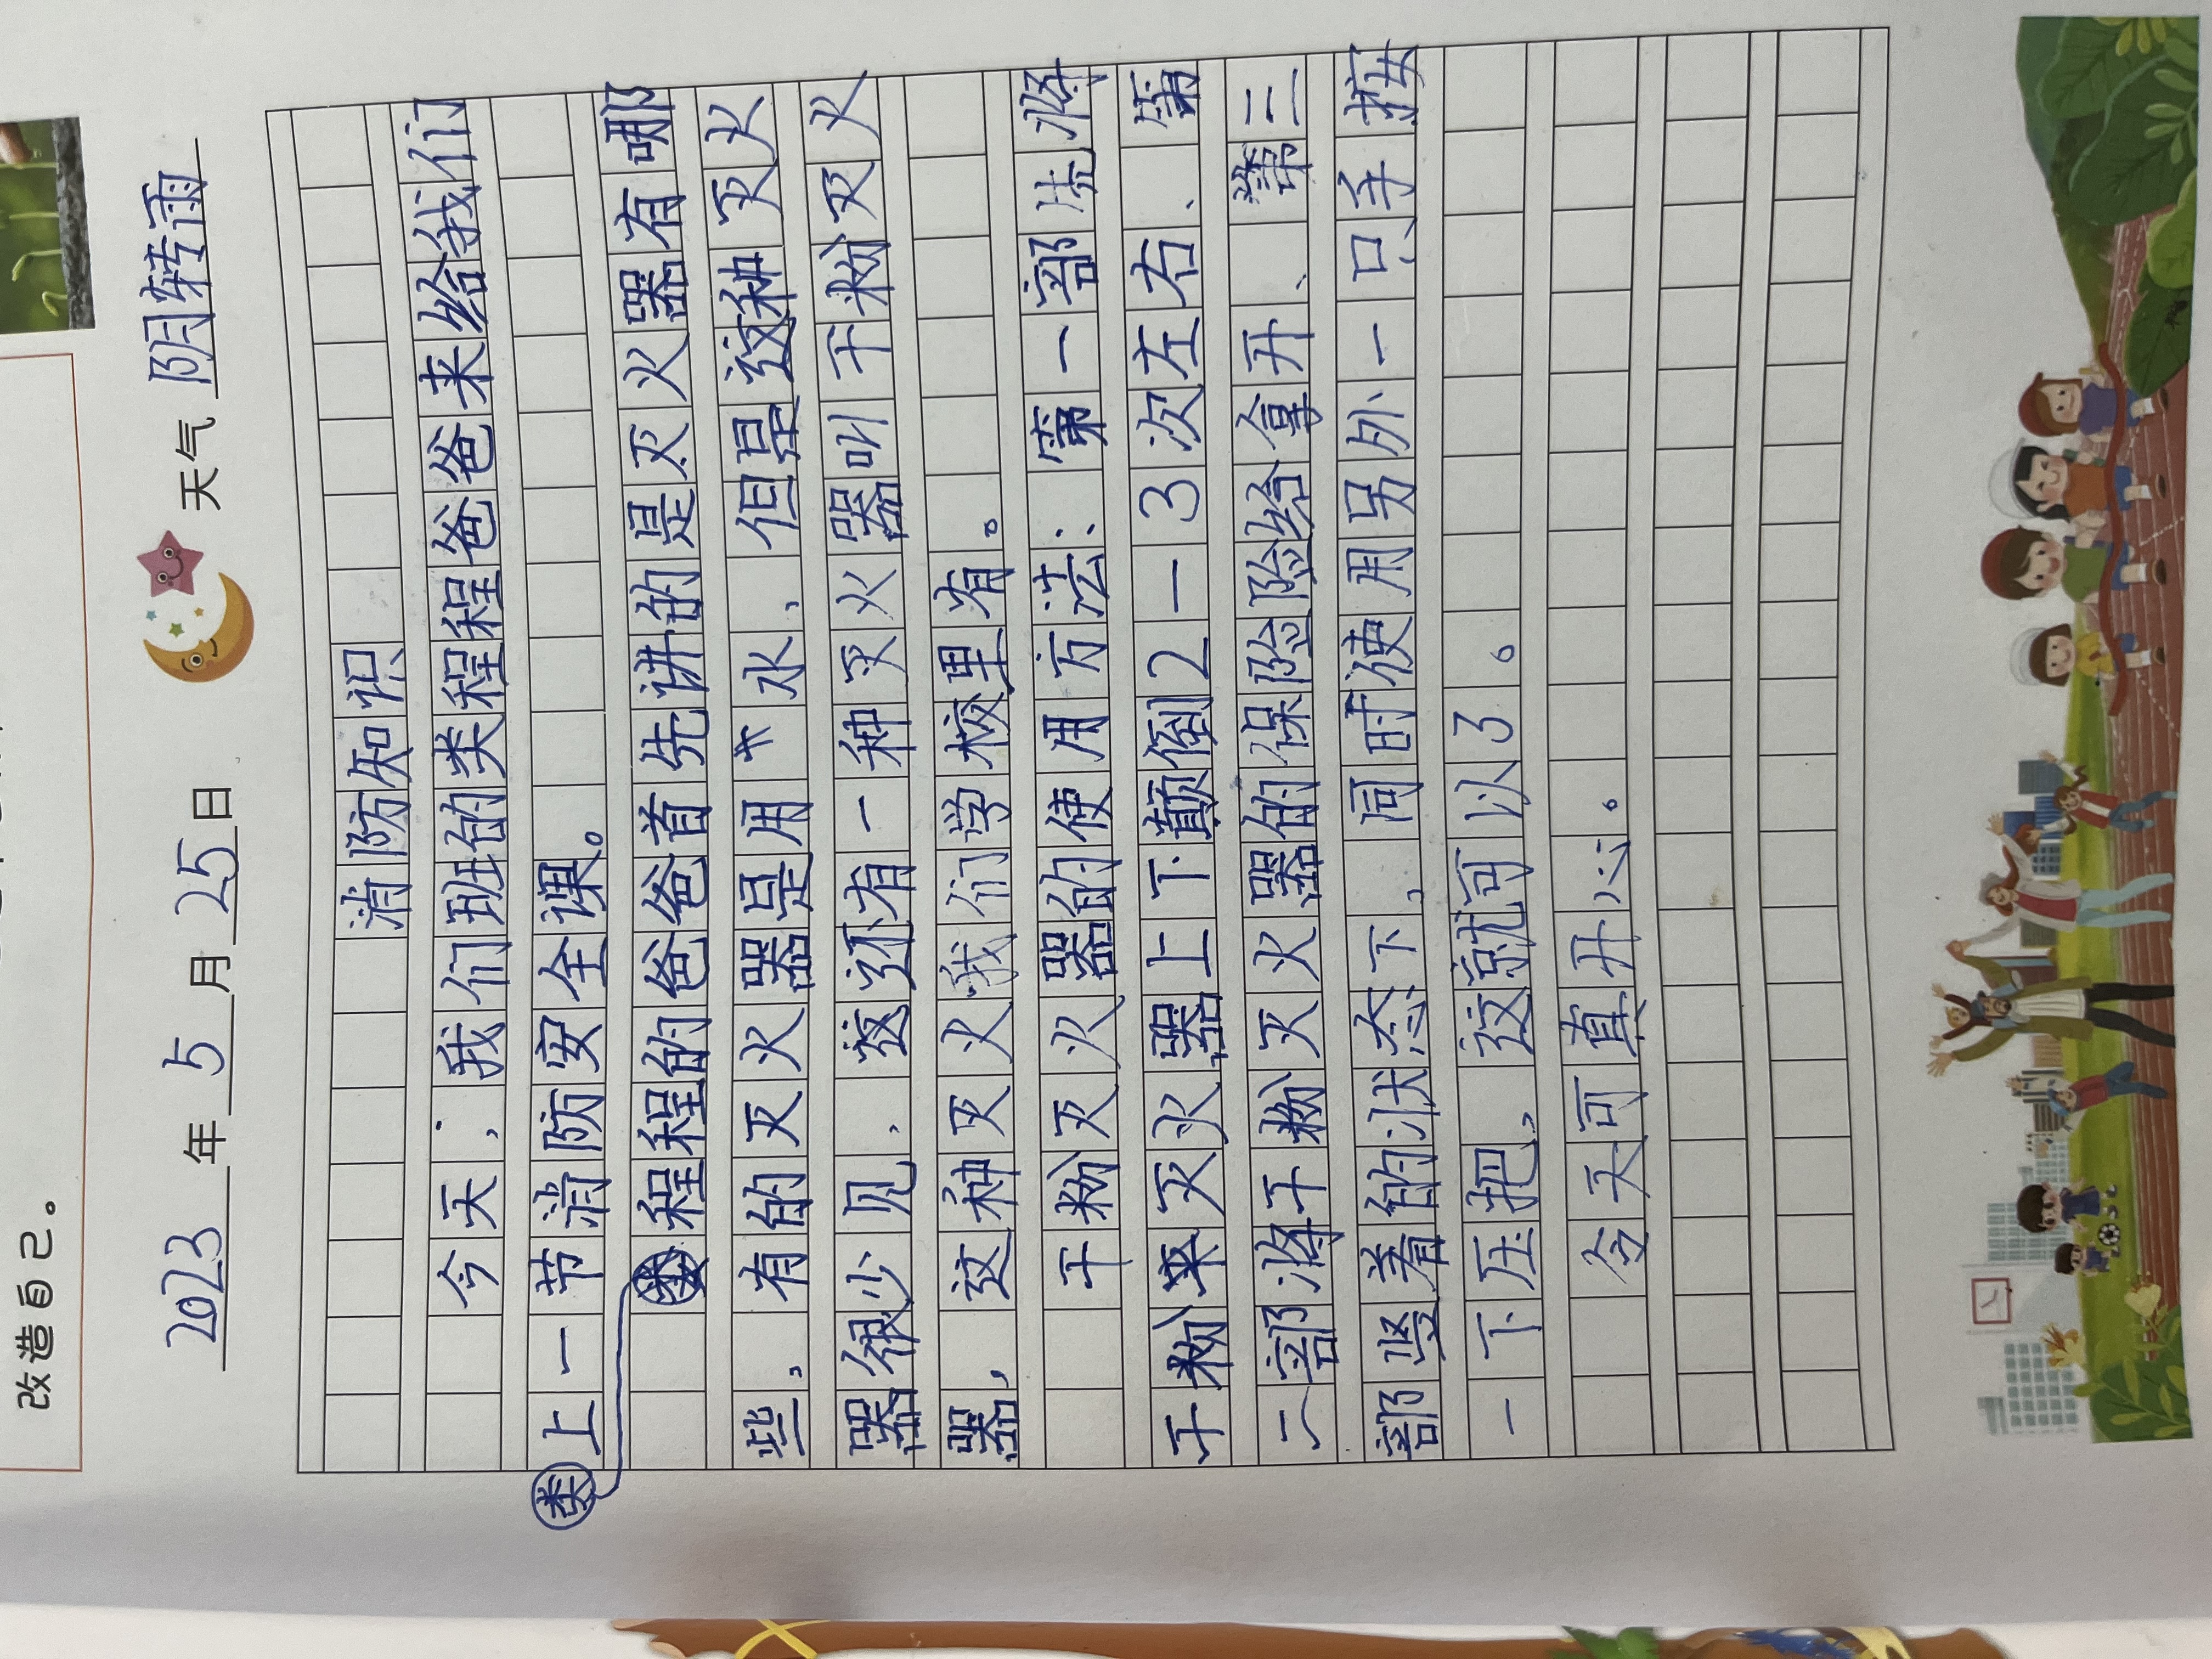 改造自己。
2023年5月25日 天气 阴转雨
消防知识
今天，我们班的类程程爸爸来给我们
上一节消防安全课。
类程程的爸爸首先讲的是灭火器有哪
些。有的灭火器是用水，但是这种灭火
器很少见，这还有一种灭火器叫干粉灭火
器，这种灭火我们学校里有。
干粉灭火器的使用方法：第一部先将
干粉灭火器上下颠倒2—3次左右、第
二部将干粉灭火器的保险给拿开、第三
部竖着的状态下，同时使用另外一只手按
一下压把，这就可以了。
今天可真开心。